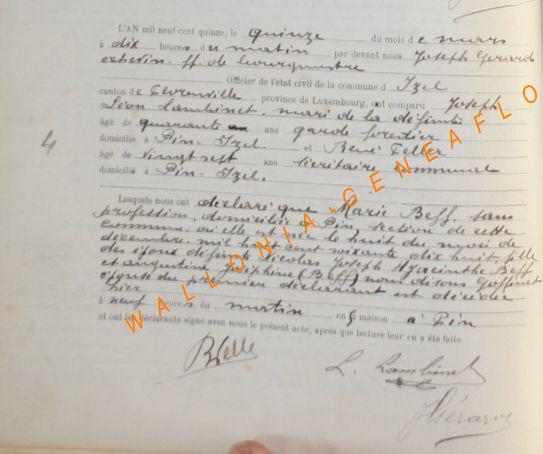 L'AN mil neuf cent quinze, le quinze du mois de mars
à dix heures du matin par devant nous Joseph Gérard
échevin ff. de bourgmestre
Officier de l'état civil de la commune d'Izel
canton de Florenville, province de Luxembourg, ont comparu Joseph
Léon Lambinet, mari de la défunte
âgé de quarante ans garde forestier
domicilié à Pin-Izel. et René Feller
4
âgé de vingt sept ans secrétaire communal
domicilié à Pin-Izel.
Lesquels nous ont déclaré que Marie Beff, sans
profession, domiciliée à Pin, section de cette
commune où elle est née le huit du mois de
décembre mil huit cent soixante dix huit, fille
des époux défunts Nicolas Joseph Hyacinthe Beff
et Augustine Joséphine (Beff) nous disons Goffinet
épouse du premier déclarant est décédée
hier
à neuf heures du matin en sa maison à Pin
et ont les déclarants signé avec nous le présent acte, après que lecture leur en a été faite.
L. Lambinet
JGérard
WALLONIA-GENEAFLO